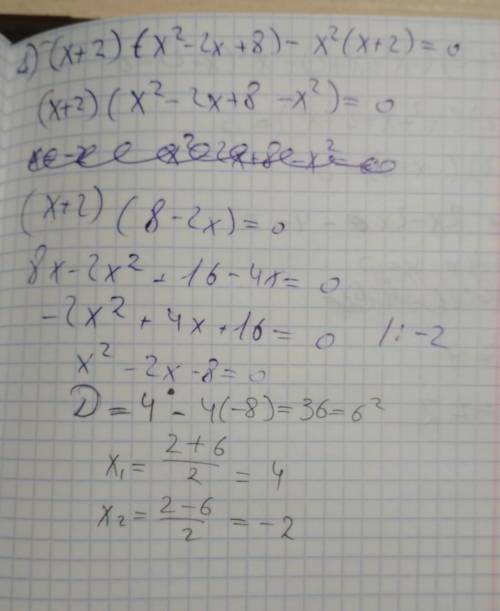 1) (x+2)(x²-2x+8)-x²(x+2)=0
(x+2)(x²-2x+8-x²)=0
(x+2)(8-2x)=0
8x-2x²+16-4x=0
-2x²+4x+16=0 /:-2
x²-2x-8=0
D=4-4(-8)=36=6²
x₁=(2+6)/2=4
x₂=(2-6)/2=-2